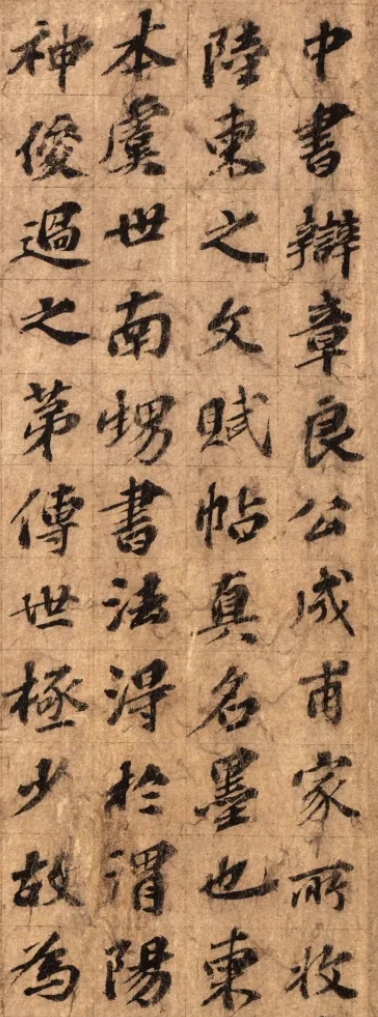 中書辯章良公成甫家所收
陸東之文賦帖真名墨也東
本虞世南甥書法得於渭陽
神俊過之苐傳世極少故為